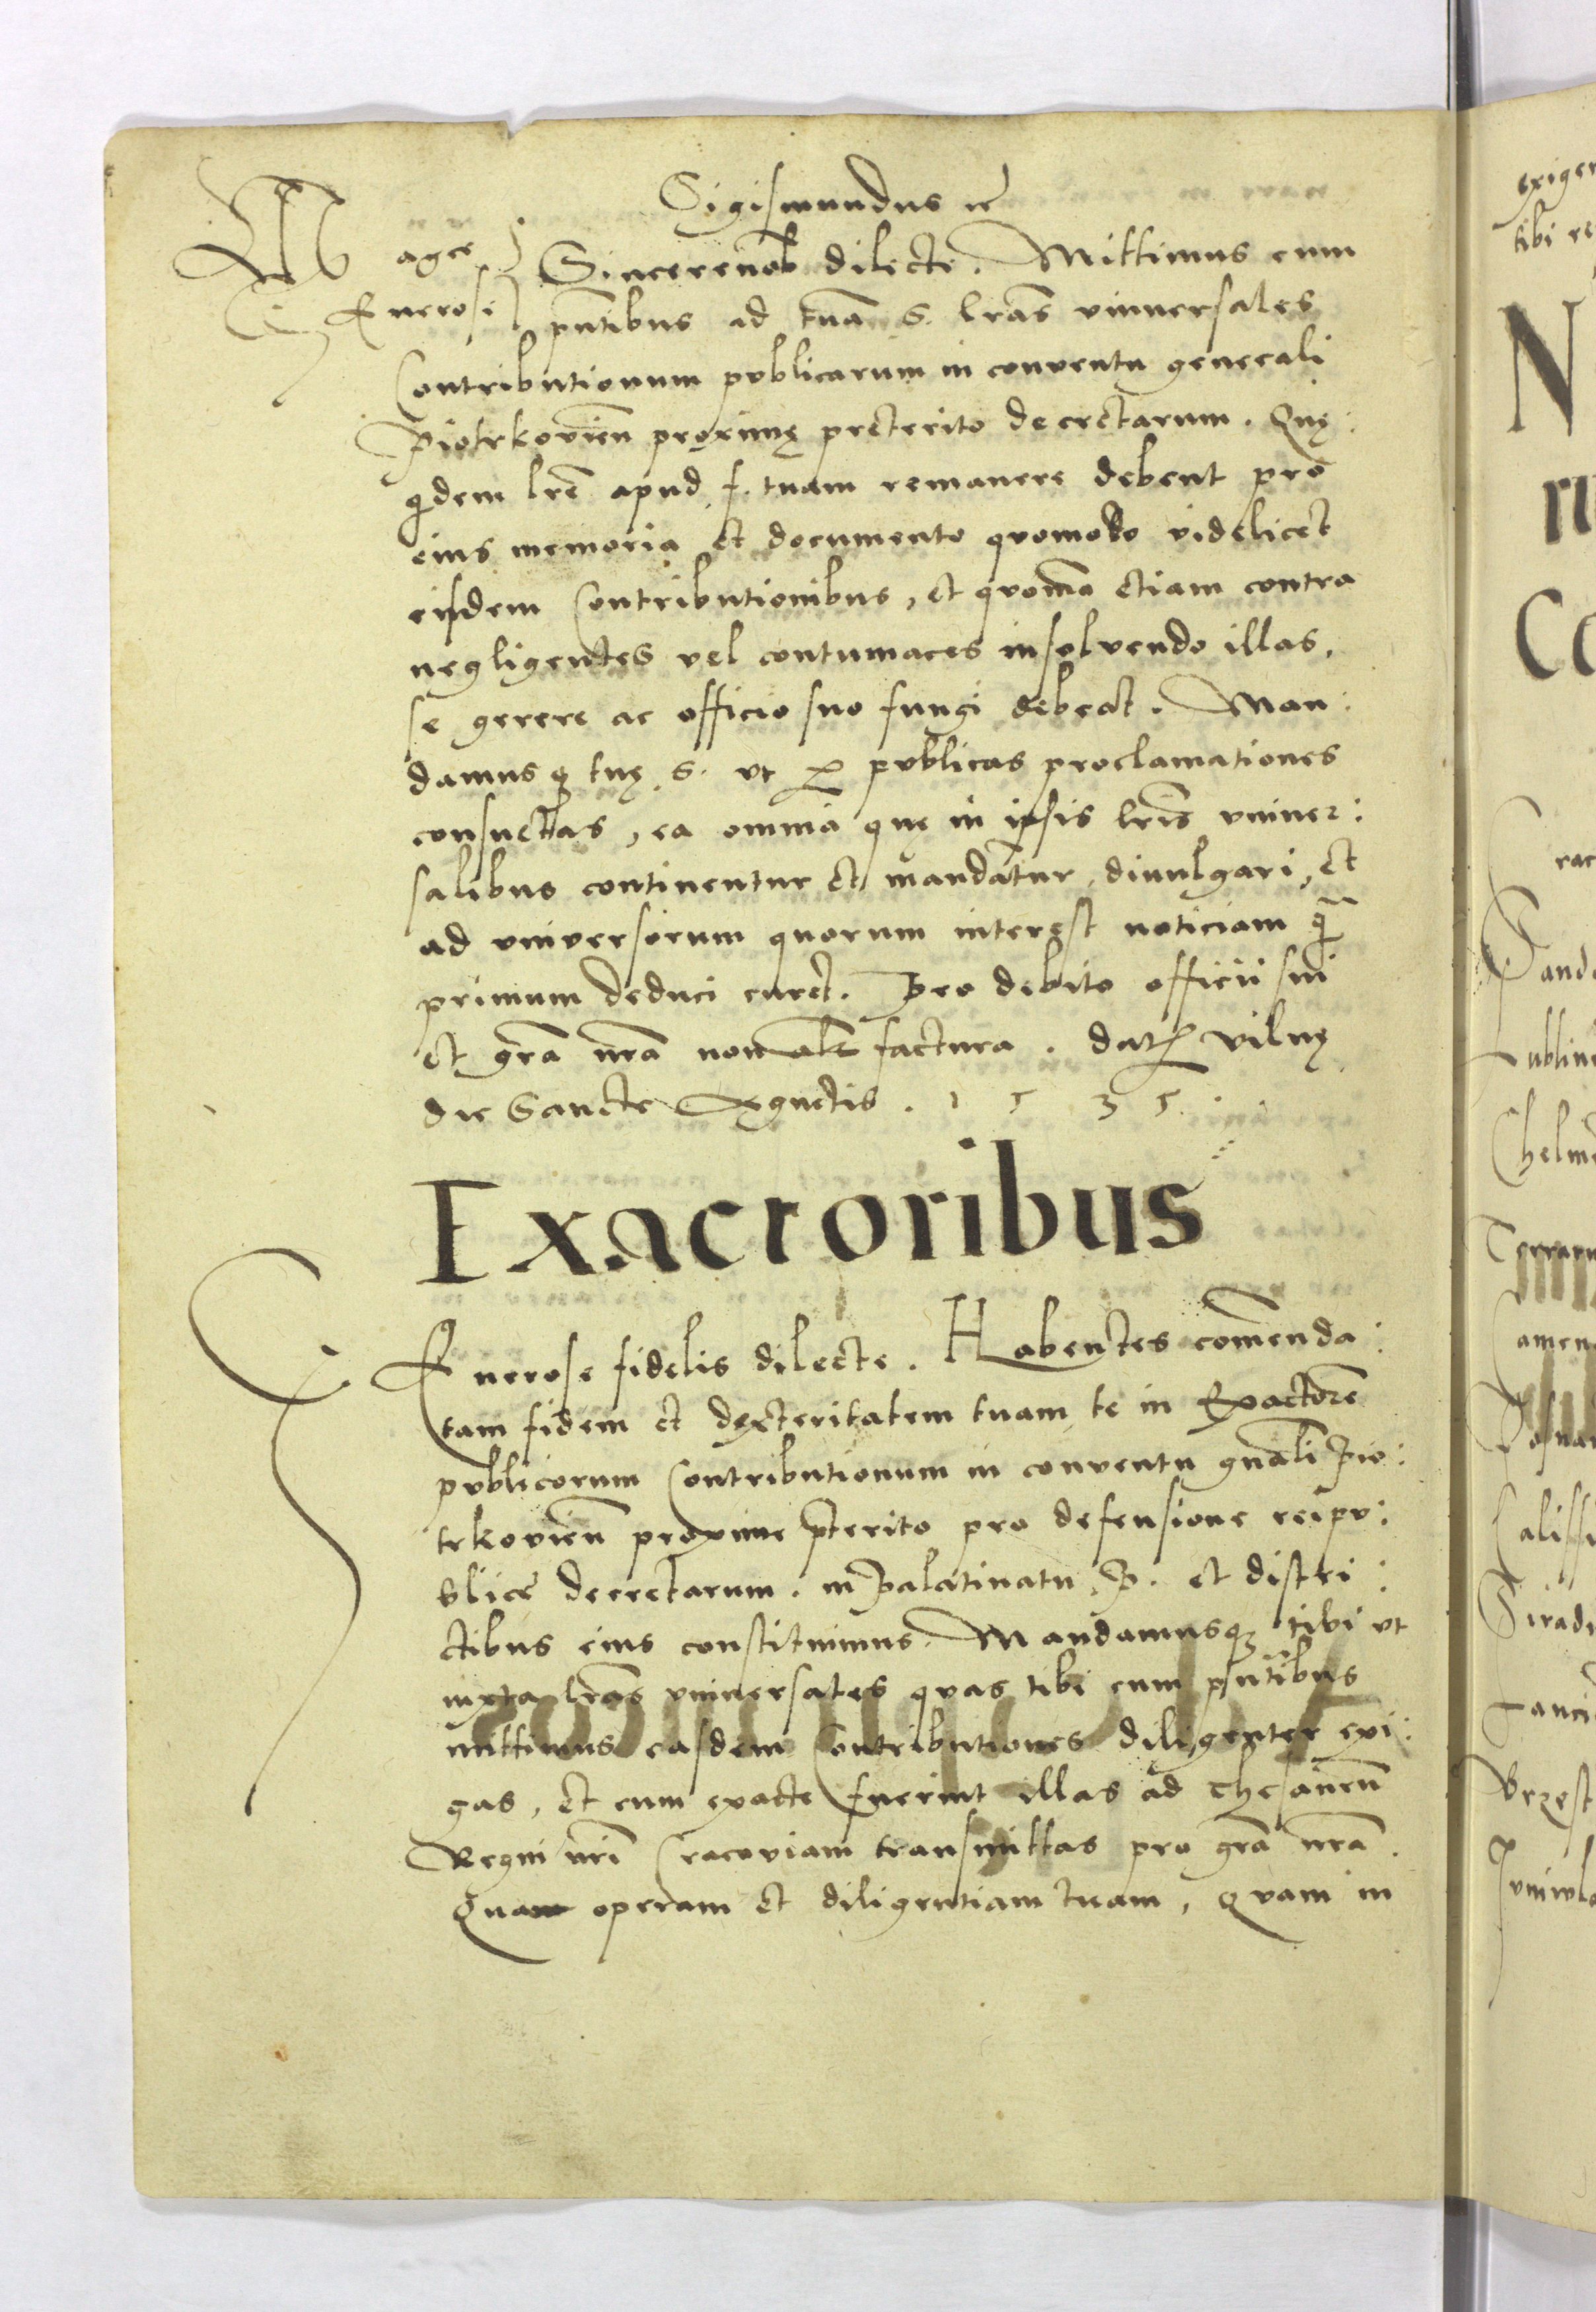 Sigismundus etc
Magce
Generose
Sincere nob dilecte. Mittimus cum
pntibus ad tuã S. lras vniuersales
Contributionum publicarum in conventu generali
Piotrkovien proximę preterito decretarum. Quę
qdem lre apud f. tuam remanere debent pro
eius memoria et documento quomodo videlicet
eisdem Contributionibus, et quomo etiam contra
negligentes vel contumaces in solvendo illas,
se gerere ac officio suo fungi debeat. Man:
damus q tuę S. vt per publicas proclamationes
consuetas, ea omnia quę in ipsis lris vniuer:
salibus continentur et mandatur, diuulgari, et
ad vniversorum quorum interest noticiam q̃
primum deduci curet. Pro debito officii sui
et gra nra non alr factura. datę Vilnę
die Sancte Agnetis. 1535.
Exactoribus
Generose fidelis dilecte. Habentes comenda:
tam fidem et dexteritatem tuam te in Exactore
publicorum Contributionum in conventu gnali Pio:
trkovien proxime pterito pro defensione reipu:
blice decretarum. in Palatinatu P. et distri:
ctibus eius constituimus. Mandamusq tibi vt
iuxta lras vniuersales quas tibi cum pntibus
mittimus easdem Contributiones diligenter exi:
gas, et cum exacte fuerint illas ad Thesaurũ
Regni nri Cracoviam transmittas pro gra nra.
Quam operam et diligentiam tuam, quam in